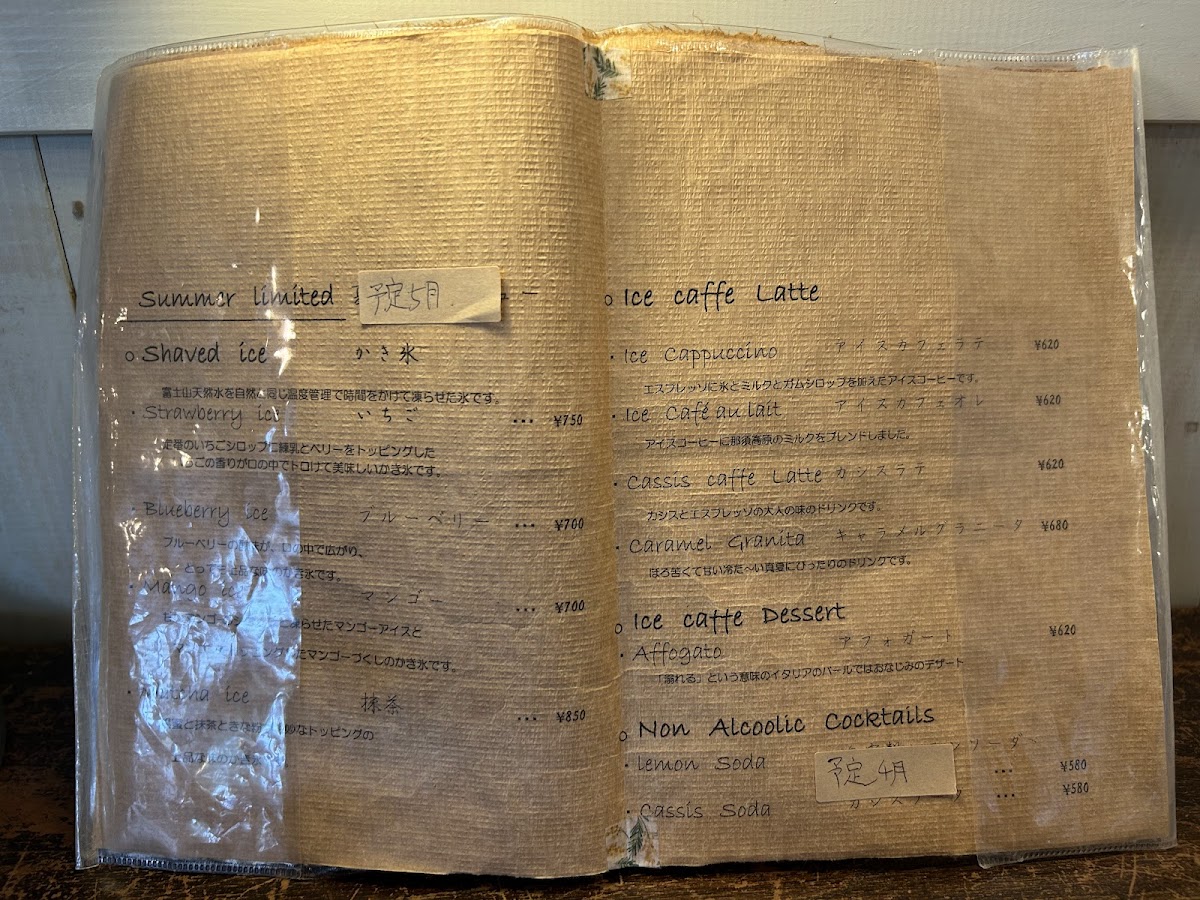 Summer limited 予定5月 ュー
○ Shaved ice かき氷
富士山天然水を自然と同じ温度管理で時間をかけて凍らせた氷です。
・Strawberry ice いちご ... ¥750
定番のいちごシロップに練乳とベリーをトッピングした
いちごの香りが口の中でトロけて美味しいかき氷です。
・Blueberry ice ブルーベリー ... ¥700
ブルーベリーの 口の中で広がり、
かき氷です。
・Mango ice マンゴー ... ¥700
凍らせたマンゴーアイスと
マンゴーづくしのかき氷です。
・Matcha ice 抹茶 ... ¥850
と抹茶ときな粉 なトッピングの
上品な
○ Ice caffe Latte
・Ice Cappuccino アイスカフェラテ ¥620
エスプレッソに氷とミルクとガムシロップを加えたアイスコーヒーです。
・Ice Café au lait アイスカフェオレ ¥620
アイスコーヒーに那須高原のミルクをブレンドしました。
・Cassis caffe Latte カシスラテ ¥620
カシスとエスプレッソの大人の味のドリンクです。
・Caramel Granita キャラメルグラニータ ¥680
ほろ苦くて甘い冷た〜い真夏にぴったりのドリンクです。
○ Ice caffe Dessert
・Affogato アフォガート ¥620
「溺れる」という意味のイタリアのバールではおなじみのデザート
○ Non Alcoolic Cocktails
・lemon Soda ンソーダ ... ¥580
予定4月
・Cassis Soda カシスソーダ ... ¥580